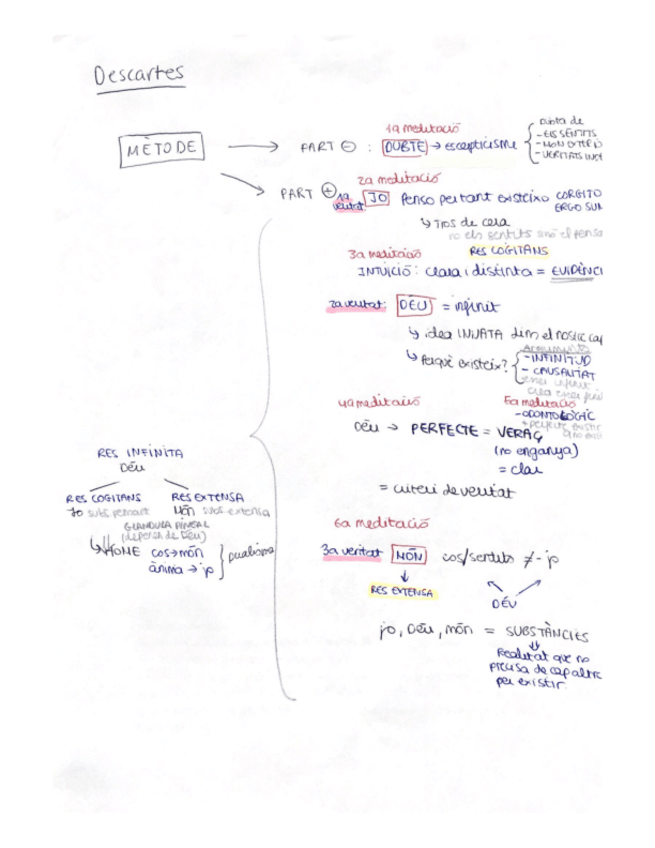 Descartes
1a meditació
MÈTODE → PART ⊖ : DUBTE → escepticisme
Dubta de
- ELS SENTITS
- MON EXTERIO
- VERITATS INTE
2a meditació
PART ⊕ 1a veritat: JO Penso per tant existeixo CORGITO
ERGO SUM
↳ Tros de cera
no els sentits sinó el pensa
3a meditació RES COGITANS
INTUÏCIÓ: clara i distinta = EVIDÈNCI
2a veritat: DÉU = infinit
↳ idea INNATA dins el nostre cap
↳ Perquè existeix?
Arguments
- INFINITUD
- CAUSALITAT
4a meditació 5a meditació
- ODONTOLÒGIC
Déu → PERFECTE = VERAÇ
(no enganya)
= clau
= criteri de veritat
6a meditació
3a veritat MÓN cos/sentits ≠ jo
↓
RES EXTENSA
DÉU
jo, Déu, món = SUBSTÀNCIES
Realitat que no
precisa de cap altre
per existir.
RES INFINITA
DÉU
RES COGITANS RES EXTENSA
Jo subs pensant Món subs extensa
GLANDULA PINEAL
(depenen de Déu)
↳ HOME cos → món
ànima → jo
dualisme